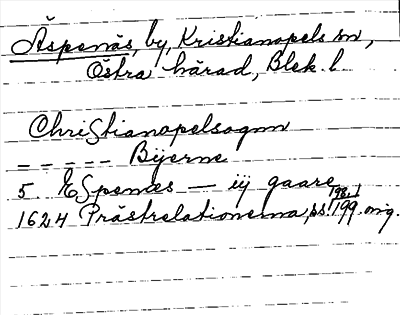 Äspenäs, by, Kristianopels sn,
Östra härad, Blek. l.
Christianopelsognn
_ _ - - - Bÿerne
5. Espenes — iij gaare
1624 Prästrelationerna, ss. 198, 199. orig.